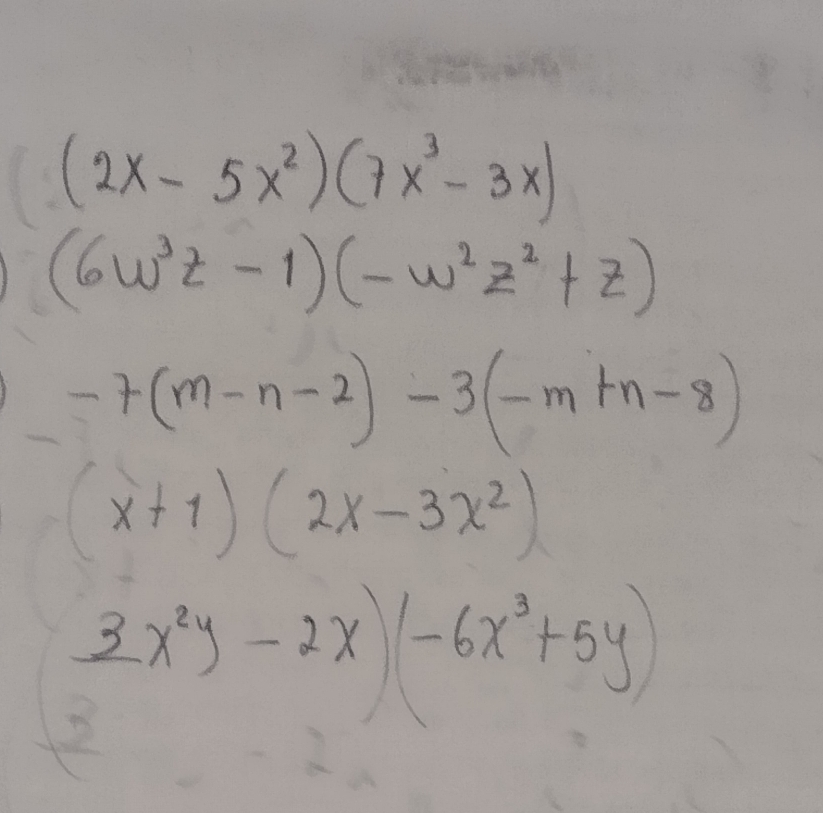 (2x - 5x²)(7x³ - 3x)
) (6w³z - 1)(-w²z² + z)
) -7(m - n - 2) - 3(-m + n - 8)
(x + 1) (2x - 3x²)
(3x²y - 2x)(-6x³ + 5y)